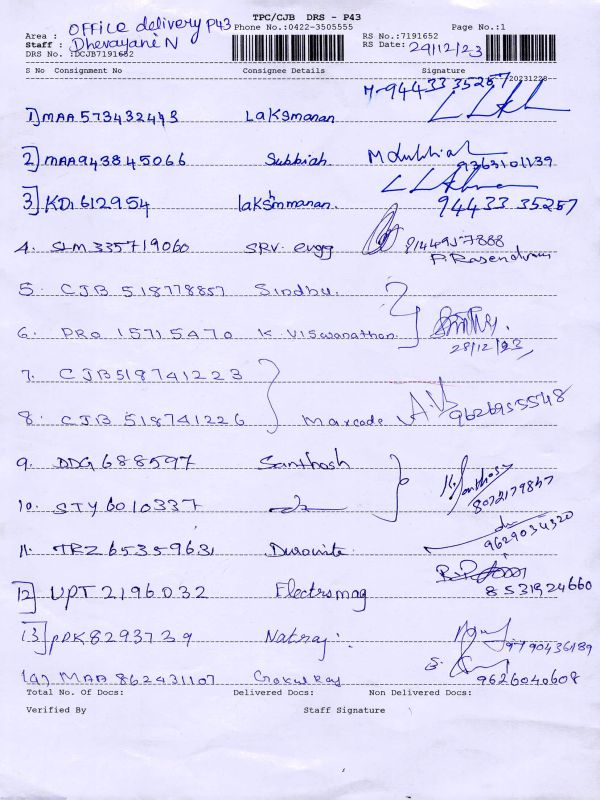 TPC/CJB DRS - P43
Area : OFFice delivery P43 Phone No.:0422-3505555 Page No.:1
Staff : Dhevayani N RS No.:7191652
DRS No. :DCJB7191652 RS Date: 29/12/23
S No Consignment No Consignee Details Signature
20231228
1) MAA 573432493 Laksmanan 94433 35257
2) MAA943845066 Subbiah 9363101139
3) KDI 612954 laksmmanan. 94433 35257
4. SLM 335719060 SRV. engg 8144957888
P. Rasendran
5. CJB 518778857 Sindhu.
6. PRO 15715470 K. Viswanathan
28/12/23,
7. CJB518741223
8. CJB 518741226 Maxcode 9626955548
9. DDG 688597 Santhosh 8072179857
10. STY 6010337
9629034320
11. TRZ 65359631 Durowite.
12) UPT 2196032 Electromag 8531924660
13) PDK8293739 Natraj. 9790436189
14) MAA 862431107 Gokul Raj 9626040608
Total No. Of Docs: Delivered Docs: Non Delivered Docs:
Verified By Staff Signature